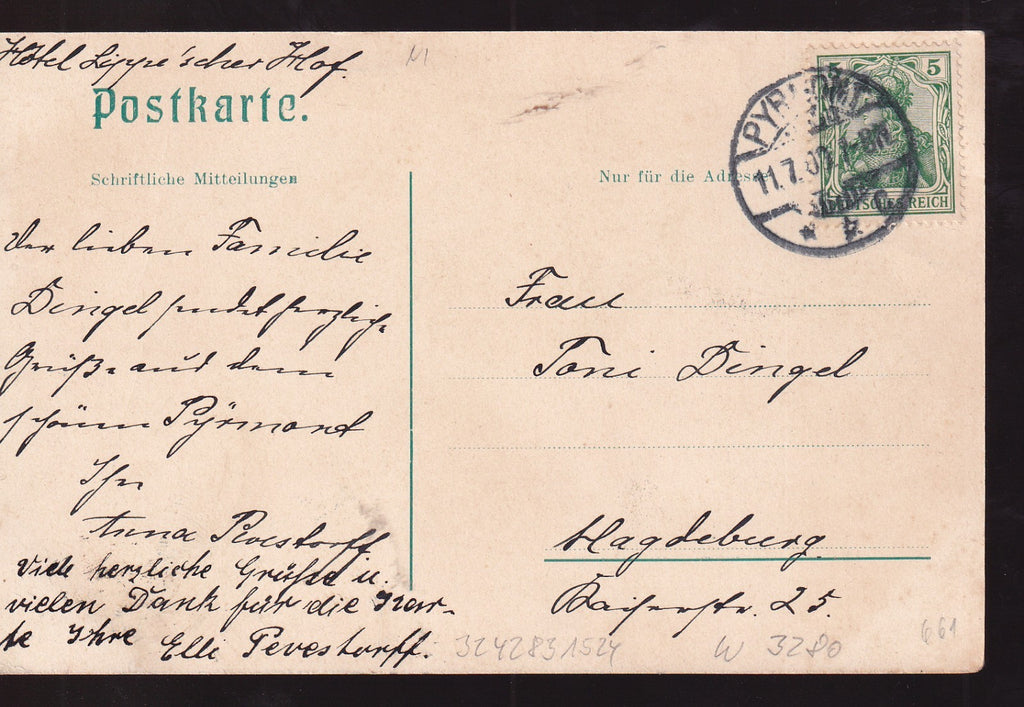 Hotel Lippe'scher Hof.
Postkarte.
Schriftliche Mitteilungen
Der lieben Familie
Dingel sendet herzliche
Grüße aus dem
schönen Pÿrmont
Ihre
Anna Pevestorff
Viele herzliche Grüße u.
vielen Dank für die Kar-
te Ihre Elli Pevestorff.
Nur für die Adresse
5 5
DEUTSCHES REICH
PYRMONT
11.7.
Frau
Toni Dingel
Magdeburg
Kaiserstr. 25.
3242831524
W 3280
661